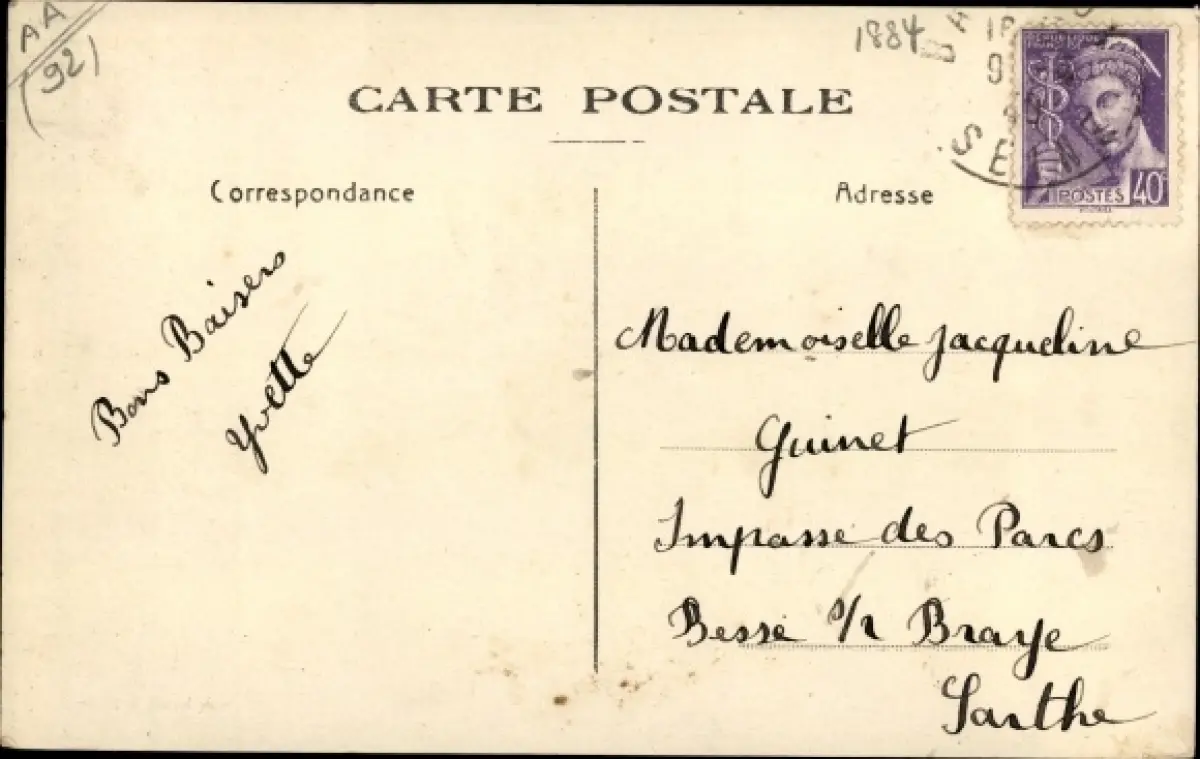 AA
(92)
1884
CARTE POSTALE
Correspondance
Adresse
SEINE
REPUBLIQUE
FRANCAISE
POSTES 40c
Bons Baisers
Yvette
Mademoiselle Jacqueline
Guinet
Impasse des Parcs
Besse s/r Braye
Sarthe